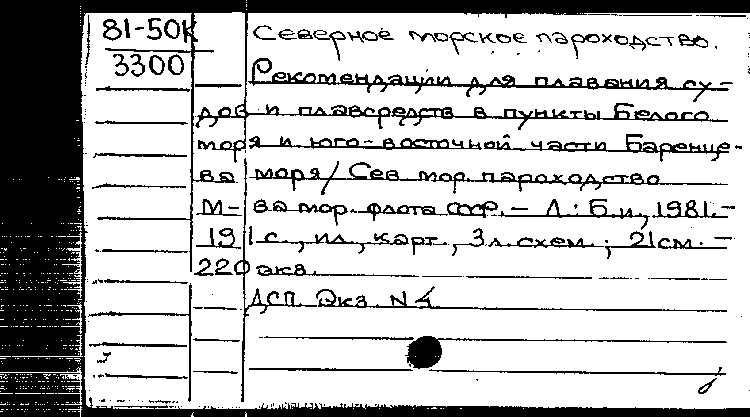 81-50К
3300
Северное морское пароходство.
Рекомендации для плавания су-
дов и плавсредств в пункты Белого
моря и юго-восточной части Баренце-
ва моря / Сев. мор. пароходство
М-ва мор. флота СССР. – Л.: Б.и., 1981. –
191 с., ил., карт., 3 л. схем.; 21 см. –
220 экз.
ДСП. Экз. N 4